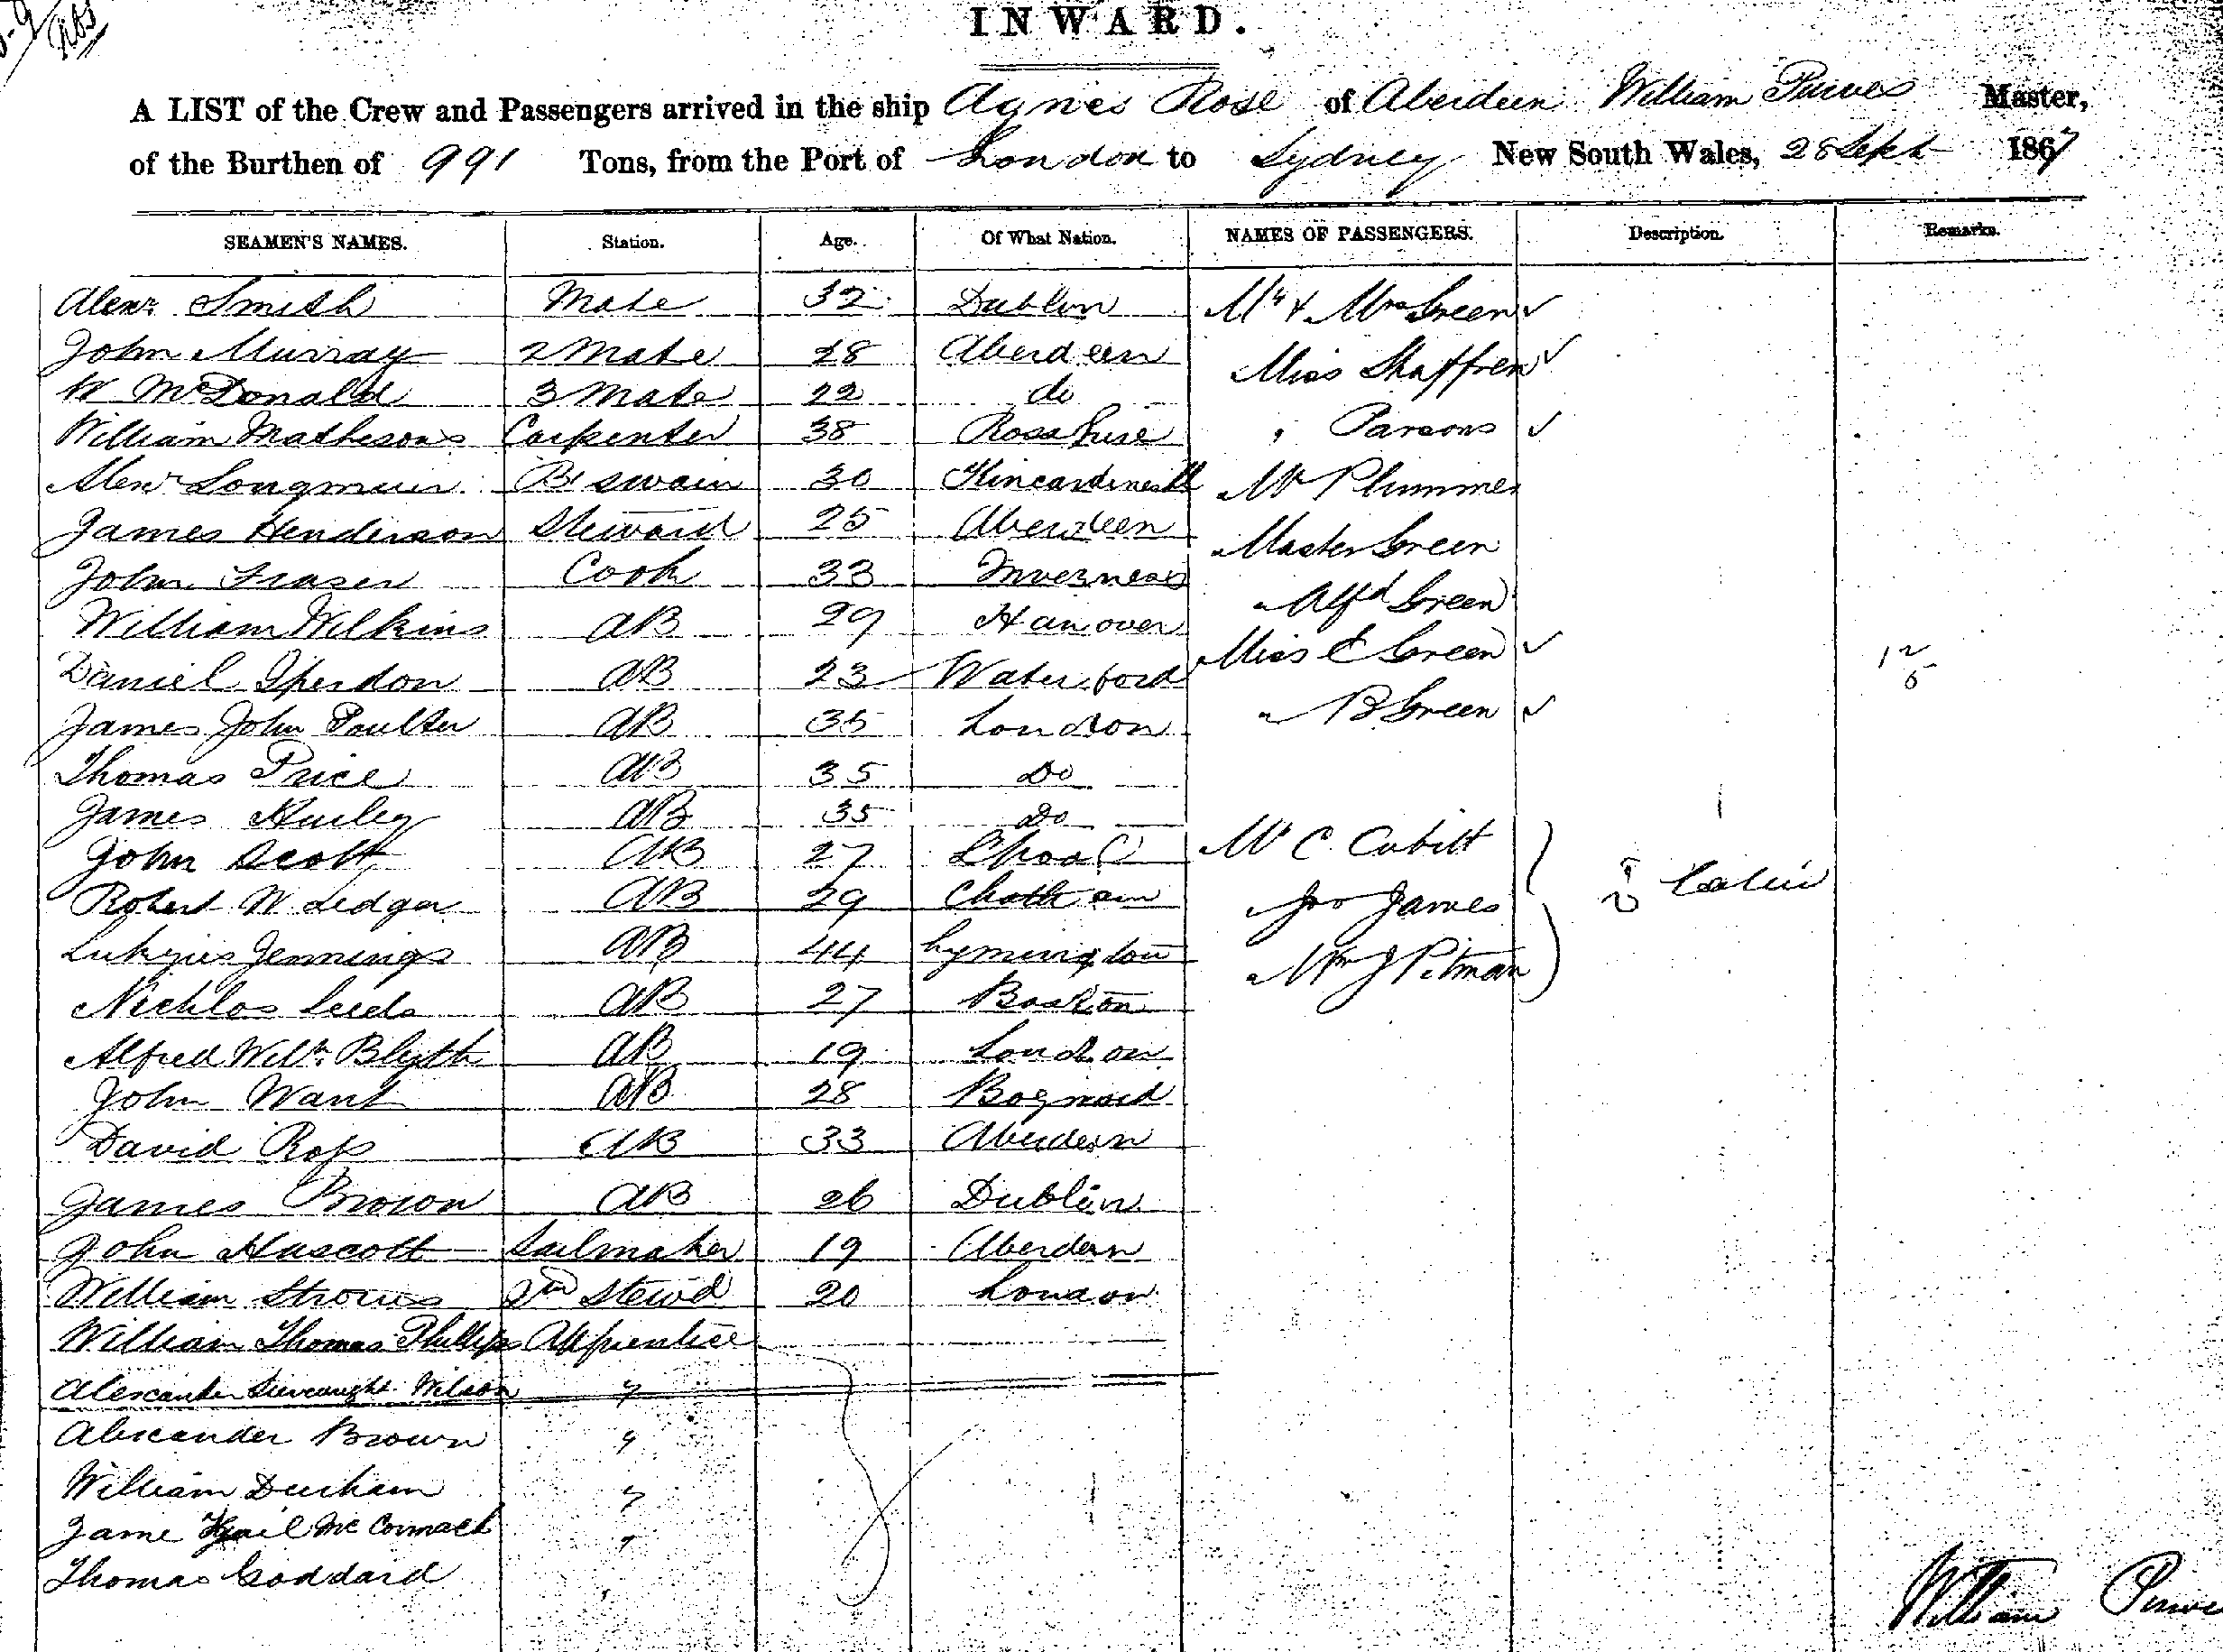 INWARD.
A LIST of the Crew and Passengers arrived in the ship Agnes Rose of Aberdeen William Purves Master,
of the Burthen of 991 Tons, from the Port of London to Sydney New South Wales, 28 Sept 1867
SEAMEN'S NAMES. Station. Age. Of What Nation. NAMES OF PASSENGERS. Description. Remarks.
Alexr Smith Mate 32 Dublin Mr & Mrs Green ✓
John Murray 2 Mate 28 Aberdeen Miss Shaffren ✓
W McDonald 3 Mate 22 do
William Mathesons Carpenter 38 Rosshire " Parsons ✓
Alexr Longmuir Bt swain 30 Kincardinesh Mr Plummer
James Henderson Steward 25 Aberdeen Master Green
John Fraser Cook 33 Inverness Alfd Green
William Wilkins AB 29 Hanover Miss E Green ✓
Daniel AB 23 Waterford
James John Poulter AB 35 London " B Green ✓
Thomas Price AB 35 Do
James Hurley AB 35 Do
John Scott AB 27 Mr C. Cubitt
Robert W Ledger AB 29 Chatham Jno James
Jennings AB 44 Lymington Wm J Pitman
Nichlos Leeds AB 27 Boston
Alfred Willm Blyth AB 19 London
John Want AB 28 Bognord
David Ross AB 33 Aberdeen
James Brown AB 26 Dublin
John Huscott Sailmaker 19 Aberdeen
William Strous 2nd Stewd 20 London
William Thomas Phillips Apprentice
Alexander Wilson "
Alexander Brown "
William Durham "
Jame McCormack "
Thomas Goddard
William Purves